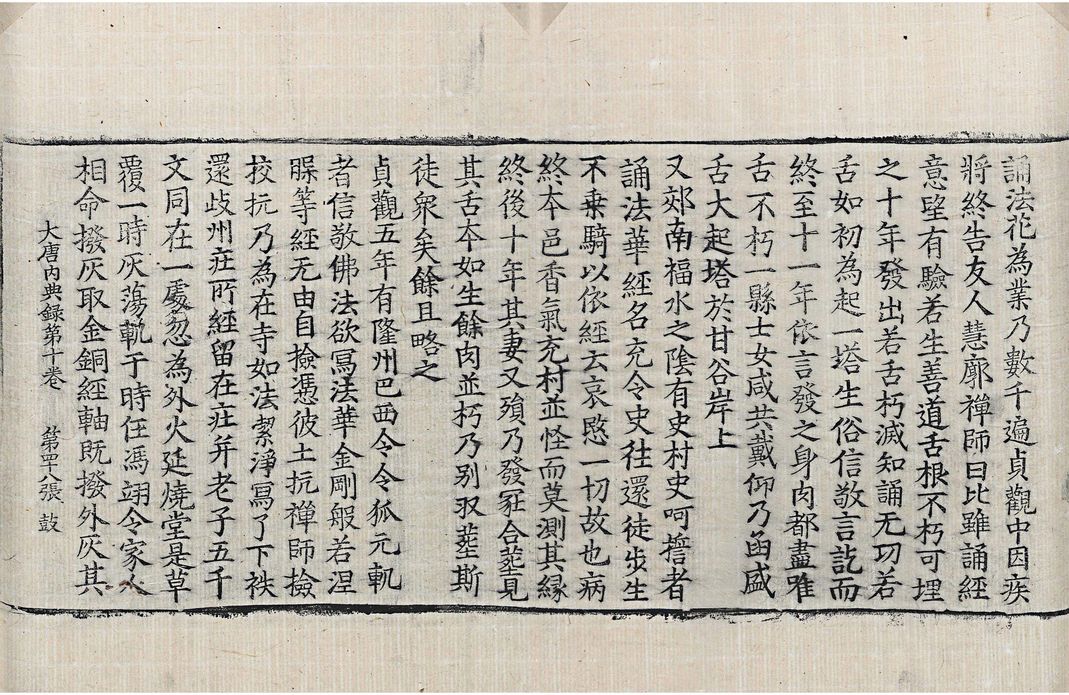 誦法花為業乃數千遍貞觀中因疾
將終告友人慧廓禪師曰比雖誦經
意望有驗若生善道舌根不朽可埋
之十年發出若舌朽滅知誦无功若
舌如初為起一塔生俗信敬言訖而
終至十一年依言發之身肉都盡唯
舌不朽一縣士女咸共戴仰乃函盛
舌大起塔於甘谷岸上
又郊南福水之陰有史村史呵擔者
誦法華經名充令史往還徒步生
不乗騎以依經云哀愍一切故也病
終本邑香氣充村並怪而莫測其縁
終後十年其妻又殞乃發冢合葬見
其舌本如生餘肉並朽乃别収葬斯
徒衆矣餘且略之
貞觀五年有隆州巴西令令狐元軌
者信敬佛法欲寫法華金剛般若涅
槃等經无由自撿憑彼土抗禪師撿
挍抗乃為在寺如法潔淨寫了下袟
還歧州莊所經留在莊并老子五千
文同在一處忽為外火延燒堂是草
覆一時灰蕩軌于時任馮翊令家人
相命撥灰取金銅經軸既撥外灰其
大唐内典録第十卷 第四十八張 鼓